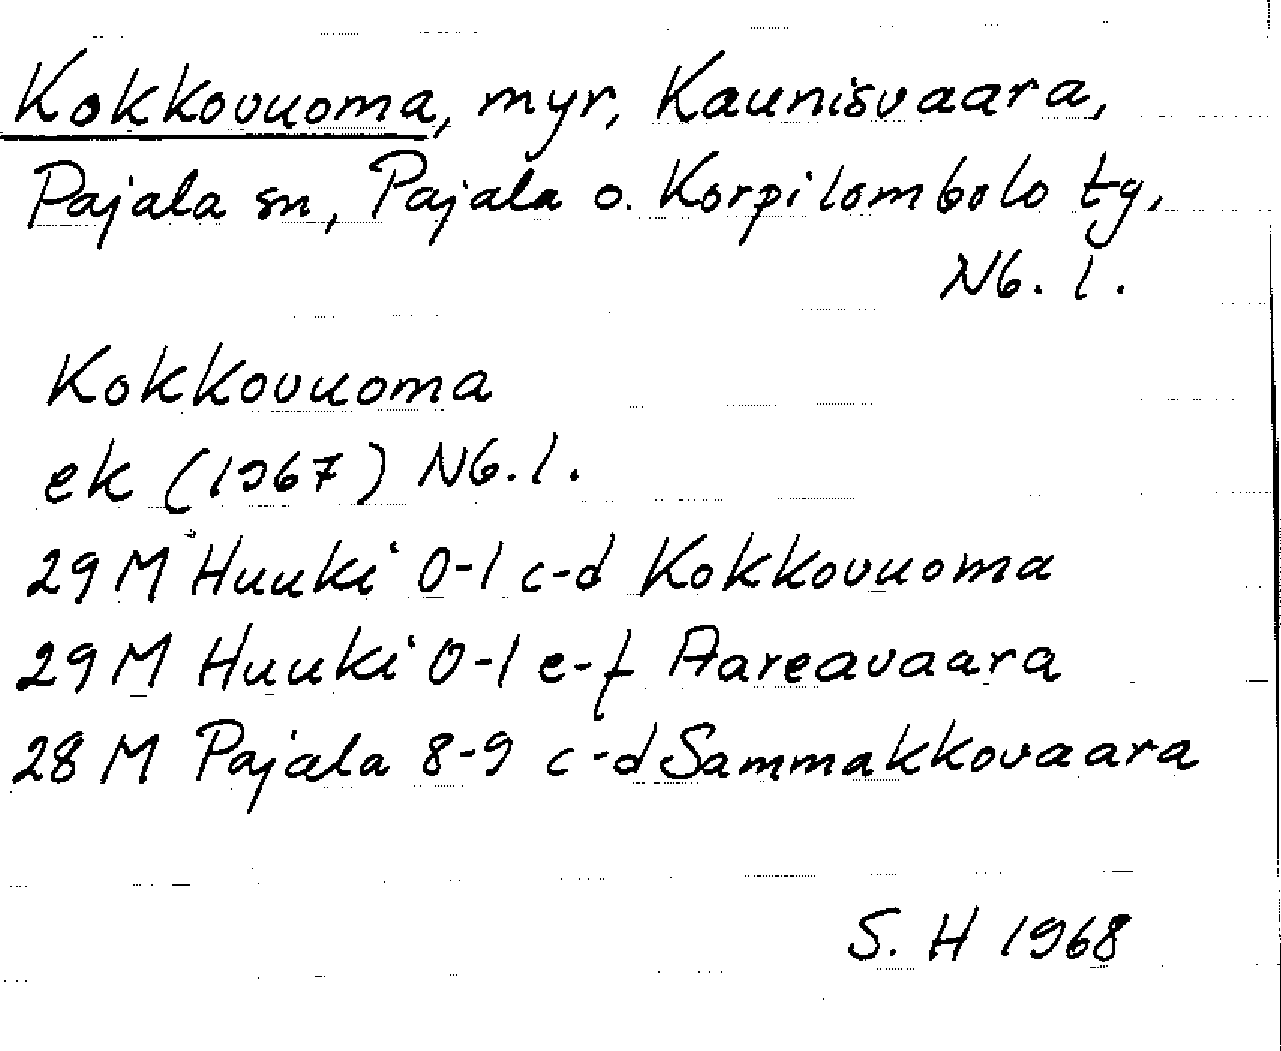 Kokkovuoma, myr, Kaunisvaara,
Pajala sn, Pajala o. Korpilombolo tg,
Nb. l.
Kokkovuoma
ek (1967) Nb. l.
29 M Huuki 0-1 c-d Kokkovuoma
29 M Huuki 0-1 e-f Aareavaara
28 M Pajala 8-9 c-d Sammakkovaara
S. H 1968